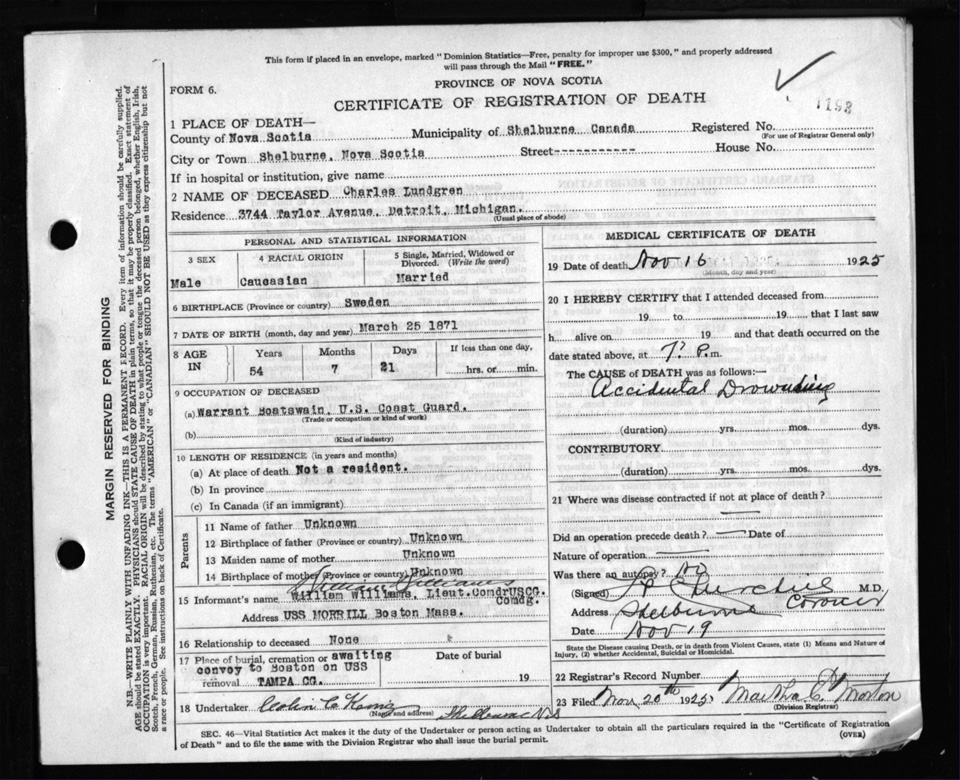 This form if placed in an envelope, marked "Dominion Statistics—Free, penalty for improper use $300," and properly addressed
will pass through the Mail "FREE."
PROVINCE OF NOVA SCOTIA
FORM 6.
CERTIFICATE OF REGISTRATION OF DEATH
1192
1 PLACE OF DEATH—
County of Nova Scotia Municipality of Shelburne Canada Registered No.
(For use of Registrar General only)
City or Town Shelburne, Nova Scotia Street----------- House No.
If in hospital or institution, give name
2 NAME OF DECEASED Charles Lundgren
Residence 3744 Taylor Avenue, Detroit, Michigan.
(Usual place of abode)
PERSONAL AND STATISTICAL INFORMATION
3 SEX 4 RACIAL ORIGIN 5 Single, Married, Widowed or Divorced. (Write the word)
Male Caucasian Married
6 BIRTHPLACE (Province or country) Sweden
7 DATE OF BIRTH (month, day and year) March 25 1871
8 AGE IN Years Months Days If less than one day,
54 7 21 hrs. or min.
9 OCCUPATION OF DECEASED
(a) Warrant Boatswain, U.S. Coast Guard.
(Trade or occupation or kind of work)
(b)
(Kind of industry)
10 LENGTH OF RESIDENCE (in years and months)
(a) At place of death Not a resident.
(b) In province
(c) In Canada (if an immigrant)
Parents
11 Name of father Unknown
12 Birthplace of father (Province or country) Unknown
13 Maiden name of mother Unknown
14 Birthplace of mother (Province or country) Unknown
15 Informant's name William Williams, Lieut.ComdrUSCG.
Comdg.
Address USS MORRILL Boston Mass.
16 Relationship to deceased None
17 Place of burial, cremation or awaiting Date of burial
convoy to Boston on USS
removal TAMPA CG. 19
18 Undertaker Shelburne N.S
(Name and address)
MEDICAL CERTIFICATE OF DEATH
19 Date of death Nov 16 1925
(Month, day and year)
20 I HEREBY CERTIFY that I attended deceased from
19 to 19 that I last saw
h alive on 19 and that death occurred on
date stated above, at 7? P.m.
The CAUSE of DEATH was as follows:—
Accidental Drownding
(duration) yrs. mos. dys.
CONTRIBUTORY
(duration) yrs. mos. dys.
21 Where was disease contracted if not at place of death?
Did an operation precede death? Date of
Nature of operation
Was there an autopsy? No
(Signed) M.D.
Coroner
Address Shelburne
Date Nov 19
State the Disease causing Death, or in death from Violent Causes, state (1) Means and Nature of
Injury, (2) whether Accidental, Suicidal or Homicidal.
22 Registrar's Record Number
23 Filed Nov 20th 1925 Martha E. Morton
(Division Registrar)
SEC. 46—Vital Statistics Act makes it the duty of the Undertaker or person acting as Undertaker to obtain all the particulars required in the "Certificate of Registration
of Death" and to file the same with the Division Registrar who shall issue the burial permit.
(OVER)
MARGIN RESERVED FOR BINDING
N.B.—WRITE PLAINLY WITH UNFADING INK—THIS IS A PERMANENT RECORD. Every item of information should be carefully supplied.
AGE should be stated EXACTLY. PHYSICIANS should STATE CAUSE OF DEATH in plain terms, so that it may be properly classified. Exact statement of
OCCUPATION is very important. RACIAL ORIGIN will be described by stating to what people or tongue the deceased person belonged, whether English, Irish,
Scotch, French, German, Russian, Ruthenian, etc. The terms "AMERICAN" or "CANADIAN" SHOULD NOT BE USED as they express citizenship but not
a race or people. See instructions on back of Certificate.